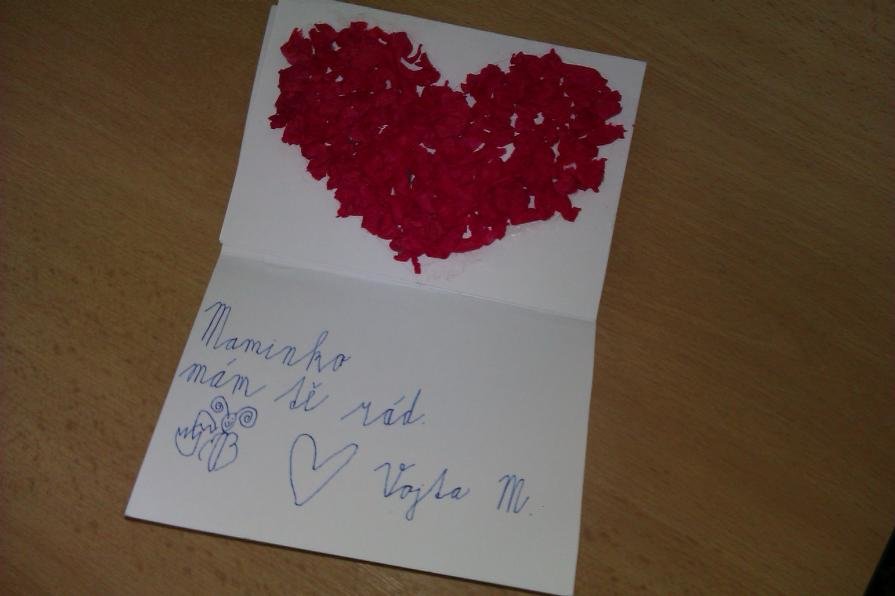 Maminko
mám tě rád.
Vojta M.